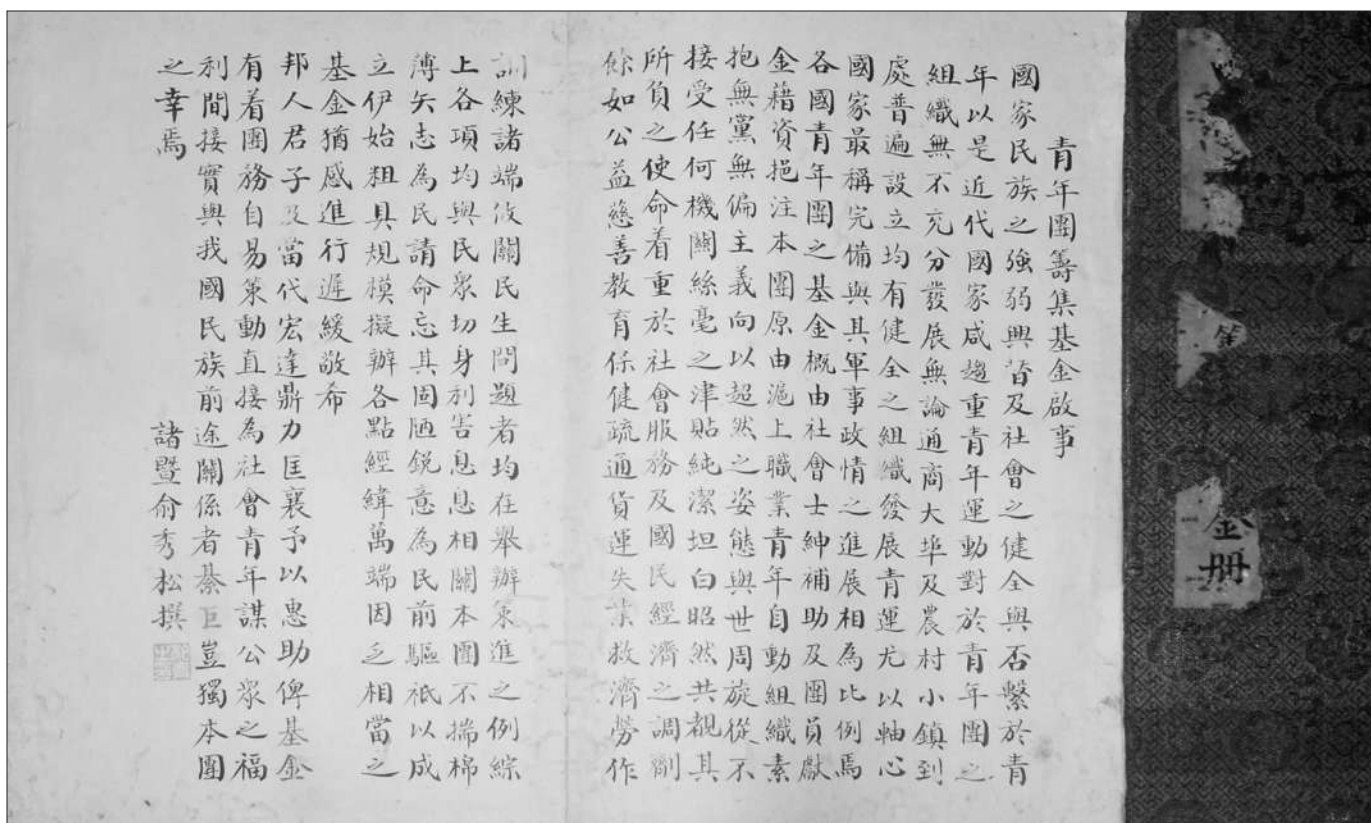 青年團籌集基金啟事
國家民族之強弱興替及社會之健全與否繫於青
年以是近代國家咸趨重青年運動對於青年團之
組織無不充分發展無論通商大埠及農村小鎮到
處普遍設立均有健全之組織發展青運尤以軸心
國家最稱完備與其軍事政情之進展相為比例焉
各國青年團之基金概由社會士紳補助及團員獻
金藉資挹注本團原由滬上職業青年自動組織素
抱無黨無偏主義向以超然之姿態與世周旋從不
接受任何機關絲毫之津貼純潔坦白昭然共覩其
所負之使命着重於社會服務及國民經濟之調劑
餘如公益慈善教育保健疏通貨運失業救濟勞作
訓練諸端攸關民生問題者均在舉辦策進之例綜
上各項均與民眾切身利害息息相關本團不揣棉
薄矢志為民請命忘其固陋銳意為民前驅祇以成
立伊始粗具規模擬辦各點經緯萬端因乏相當之
基金猶感進行遲緩敬希
邦人君子及當代宏達鼎力匡襄予以惠助俾基金
有着團務自易策動直接為社會青年謀公眾之福
利間接實與我國民族前途關係者綦巨豈獨本團
之幸焉
諸暨俞秀松撰
金册